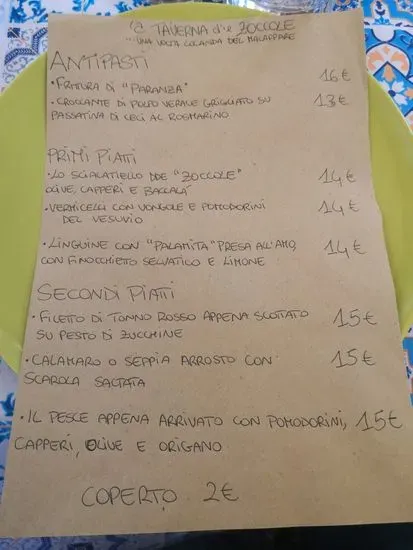 'A TAVERNA d'e ZOCCOLE
UNA VOLTA LOCANDA DEL MALAPPARE
ANTIPASTI
• FRITTURA DI "PARANZA" 16€
• CROCCANTE DI POLPO VERACE GRIGLIATO SU 13€
PASSATINA DI CECI AL ROSMARINO
PRIMI PIATTI
• LO SCIALATIELLO DDE "ZOCCOLE" 14€
OLIVE, CAPPERI E BACCALA'
• VERMICELLI CON VONGOLE E POMODORINI 14€
DEL VESUVIO
• LINGUINE CON "PALAMITA" PRESA ALL'AMO, 14€
CON FINOCCHIETTO SELVATICO E LIMONE
SECONDI PIATTI
• FILETTO DI TONNO ROSSO APPENA SCOTTATO 15€
SU PESTO DI ZUCCHINE
• CALAMARO O SEPPIA ARROSTO CON 15€
SCAROLA SALTATA
• IL PESCE APPENA ARRIVATO CON POMODORINI, 15€
CAPPERI, OLIVE E ORIGANO
COPERTO 2€